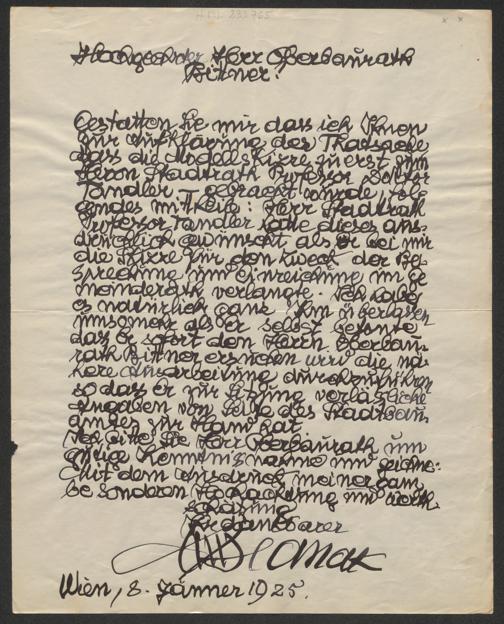 H.I.N. 232765
Hochgeehrter Herr Oberbaurath
Bittner!
Gestatten Sie mir dass ich Ihnen
zur Aufklärung der Thatsache
dass die Modellskizze zuerst zum
Herrn Stadtrath Professor Doktor
Tandler gebracht wurde, fol-
gendes mitteile: Herr Stadtrath
Professor Tandler hatte dieses aus-
drücklich gewünscht als er bei mir
die Skizze für den Zweck der Be-
sprechung und Einreichung im Ge-
meinderath verlangte. Ich habe
es natürlich ganz ihm überlassen
umsomehr als er selbst betonte
dass er sofort den Herrn Oberbau-
rath Bittner ersuchen wird die nä-
here Ausarbeitung durchzuführen
so dass er zur Sitzung verlässliche
Angaben von Seite des Stadtbau-
amtes zur Hand hat.
Ich bitte Sie Herr Oberbaurath um
gütige Kenntnisnahme und zeichne:
Mit dem Ausdruck meiner ganz
besonderen Hochachtung und Werth-
schätzung
Ihr dankbarer
AHanak
Wien, 8. Jänner 1925.